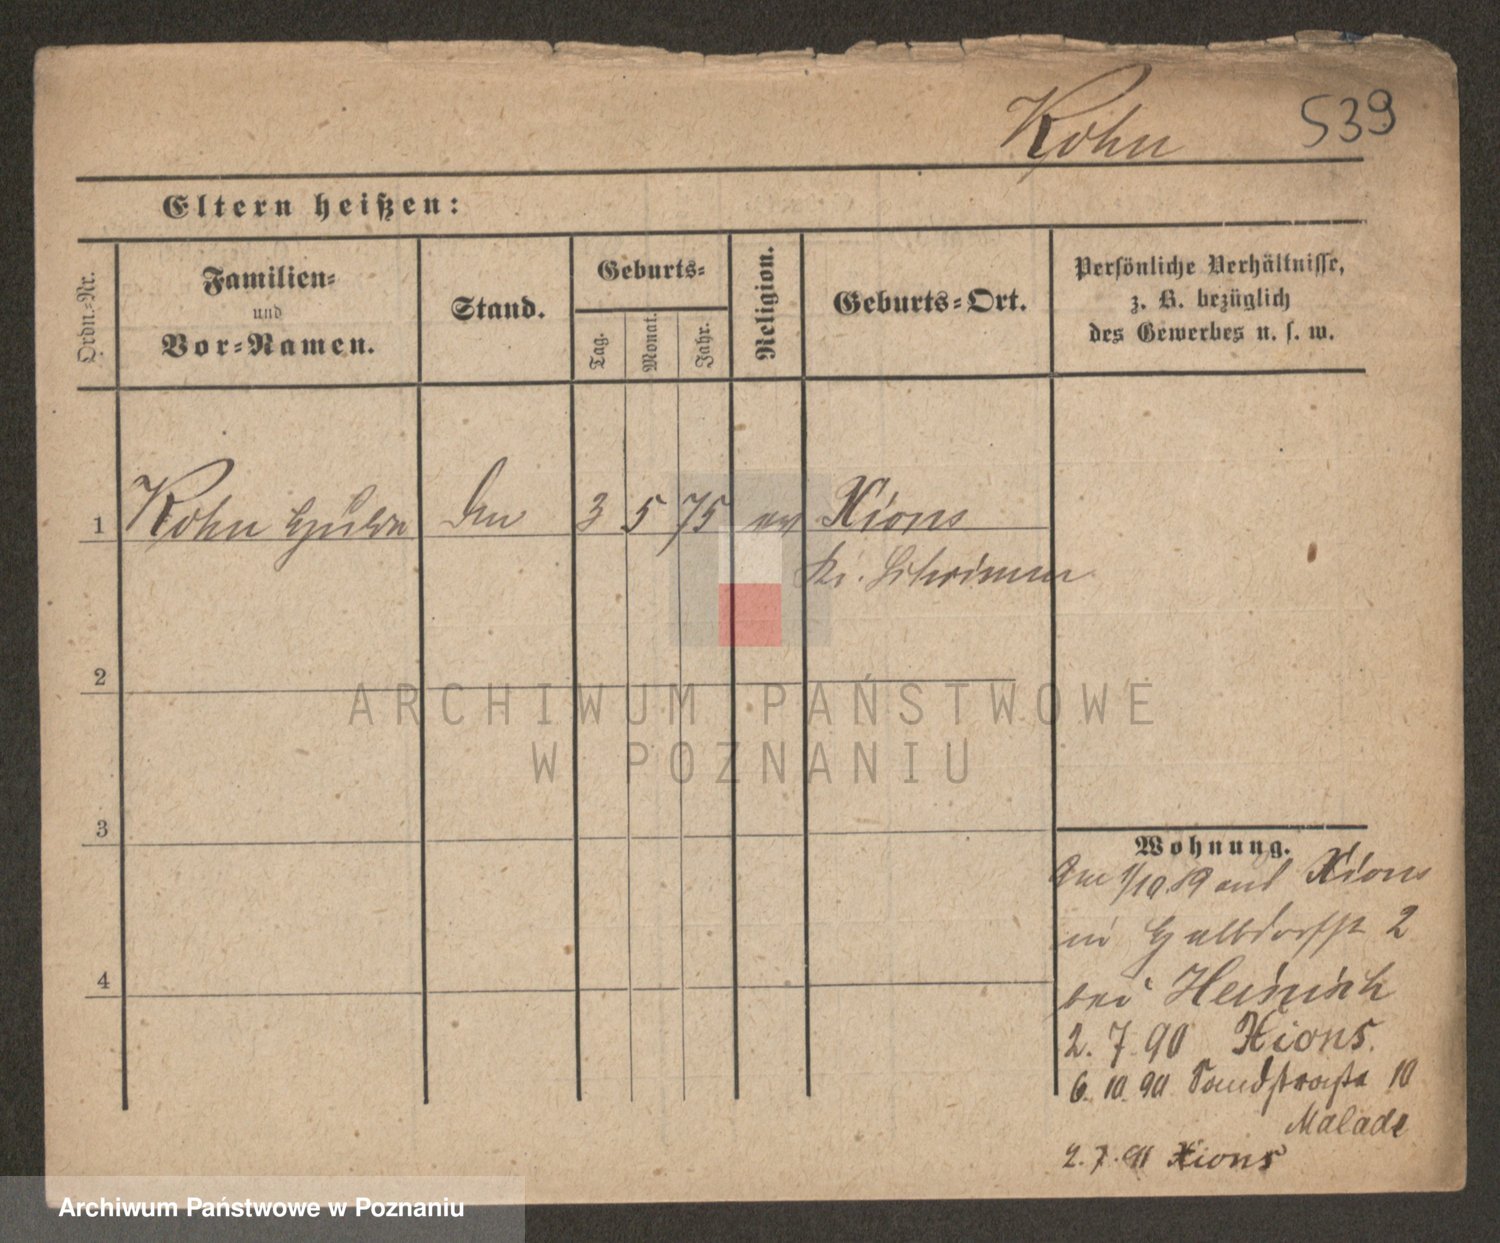 Kohn 539
Eltern heißen:
Ordn.-Nr.
Familien-
und
Vor-Namen.
Stand.
Geburts-
Tag.
Monat.
Jahr.
Religion.
Geburts-Ort.
Persönliche Verhältnisse,
z. B. bezüglich
des Gewerbes u. s. w.
1 Kohn Hulda 3 5 75 Xions
Kr. Schrimm
2
3
4
Wohnung.
Am 1/10.89 aus Xions
in Halbdorfstr 2
bei Heinrich
2. 7. 90 Xions.
6. 10. 90 Sandstraße 10
Malade
2. 7. 91 Xions
ARCHIWUM PAŃSTWOWE
W POZNANIU
Archiwum Państwowe w Poznaniu